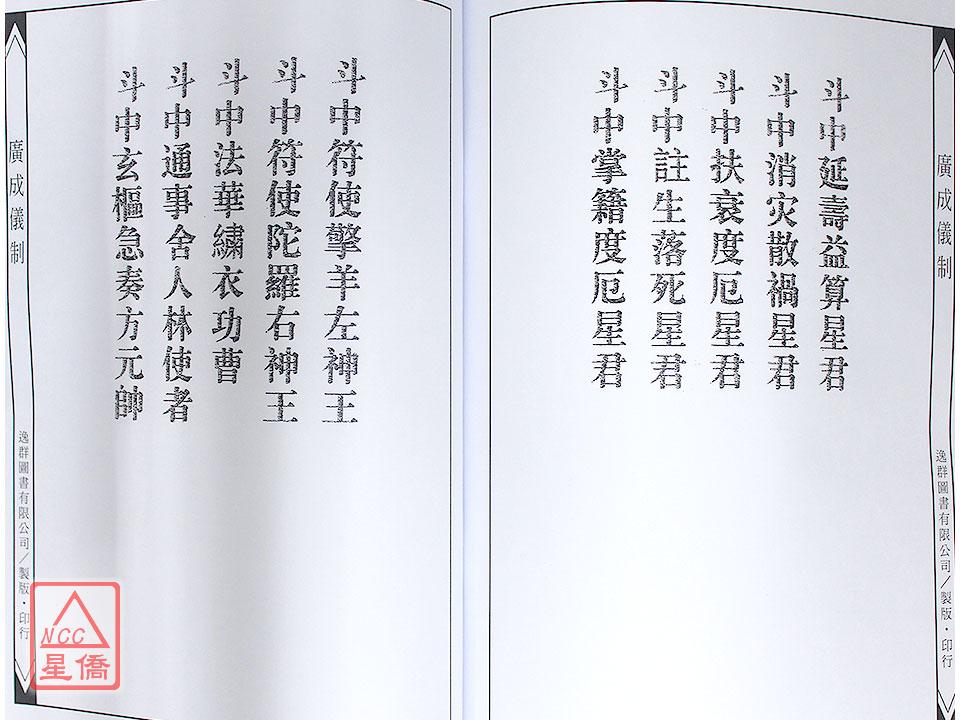 廣成儀制
斗中延壽益算星君
斗中消灾散禍星君
斗中扶衰度厄星君
斗中註生落死星君
斗中掌籍度厄星君
逸群圖書有限公司/製版・印行
斗中符使擎羊左神王
斗中符使陀羅右神王
斗中法華繡衣功曹
斗中通事舍人林使者
斗中玄樞急奏方元帥
廣成儀制
逸群圖書有限公司/製版・印行
NCC
星僑